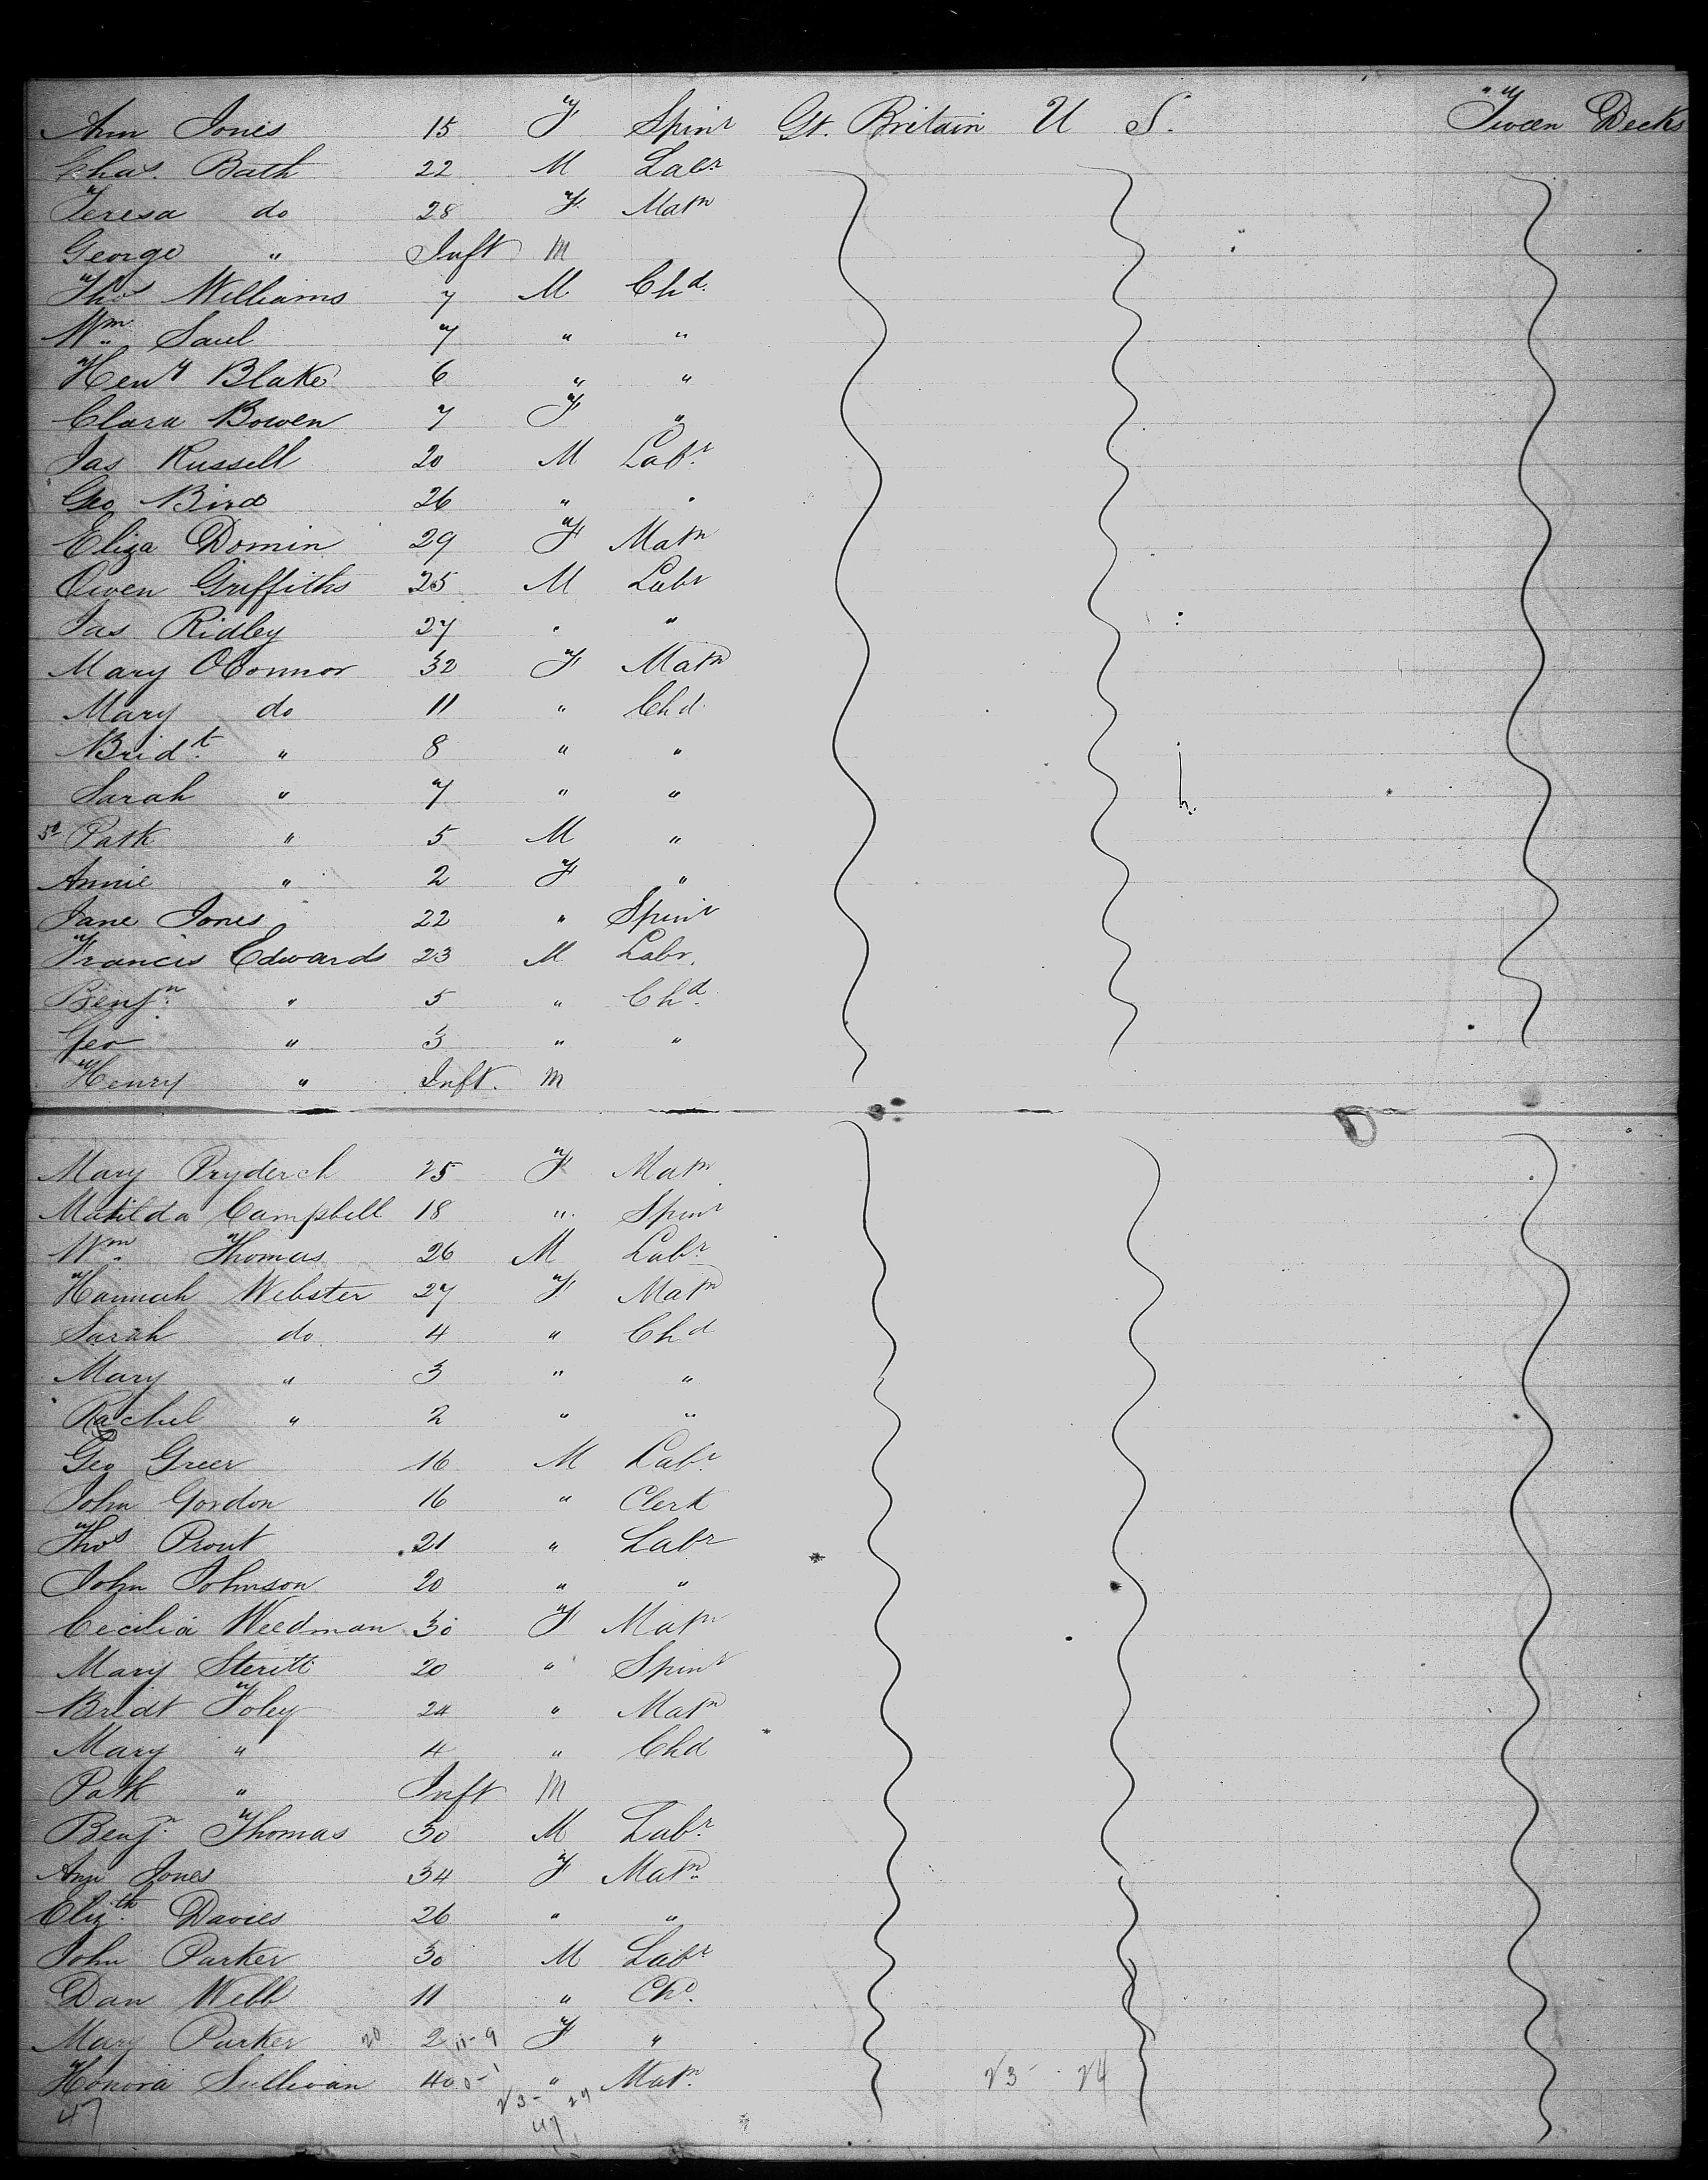 Ann Jones 15 F Spinr Gt. Britain U S. Tween Decks
Chas. Bath 22 M Labr
Teresa do 28 F Matn
George " Inft M
Thos Williams 7 M Chd.
Wm. Saul 7 " "
Heny Blake 6 " "
Clara Bowen 7 F "
Jas Russell 20 M Labr
Geo Bird 26 " "
Eliza Domin 29 F Matn
Owen Griffiths 25 M Labr
Jas Ridley 27 " "
Mary OConnor 32 F Matn
Mary do 11 " Chd.
Bridt. " 8 " "
Sarah " 7 " "
Patk " 5 M "
Annie " 2 F "
Jane Jones 22 " Spinr
Francis Edwards 23 M Labr.
Benjn. " 5 " Chd.
Geo " 3 " "
Henry " Inft. M
Mary Pryderch 25 F Matn
Matilda Campbell 18 " Spinr
Wm. Thomas 26 M Labr
Hannah Webster 27 F Matn
Sarah do 4 " Chd
Mary " 3 " "
Rachel " 2 " "
Geo Greer 16 M Labr
John Gordon 16 " Clerk
Thos Prout 21 " Labr
John Johnson 20 " "
Cecilia Weedman 30 F Matn
Mary Steritt 20 " Spinr
Bridt Foley 24 " Matn
Mary " 4 " Chd
Patk " Inft M
Benjn. Thomas 30 M Labr.
Ann Jones 34 F Matn
Elizth. Davies 26 " "
John Parker 30 M Labr
Dan Webb 11 " Chd.
Mary Parker 20 2 11-9 F "
Honora Sullivan 40 " Matn. 23 - 24
47 23 - 24
47